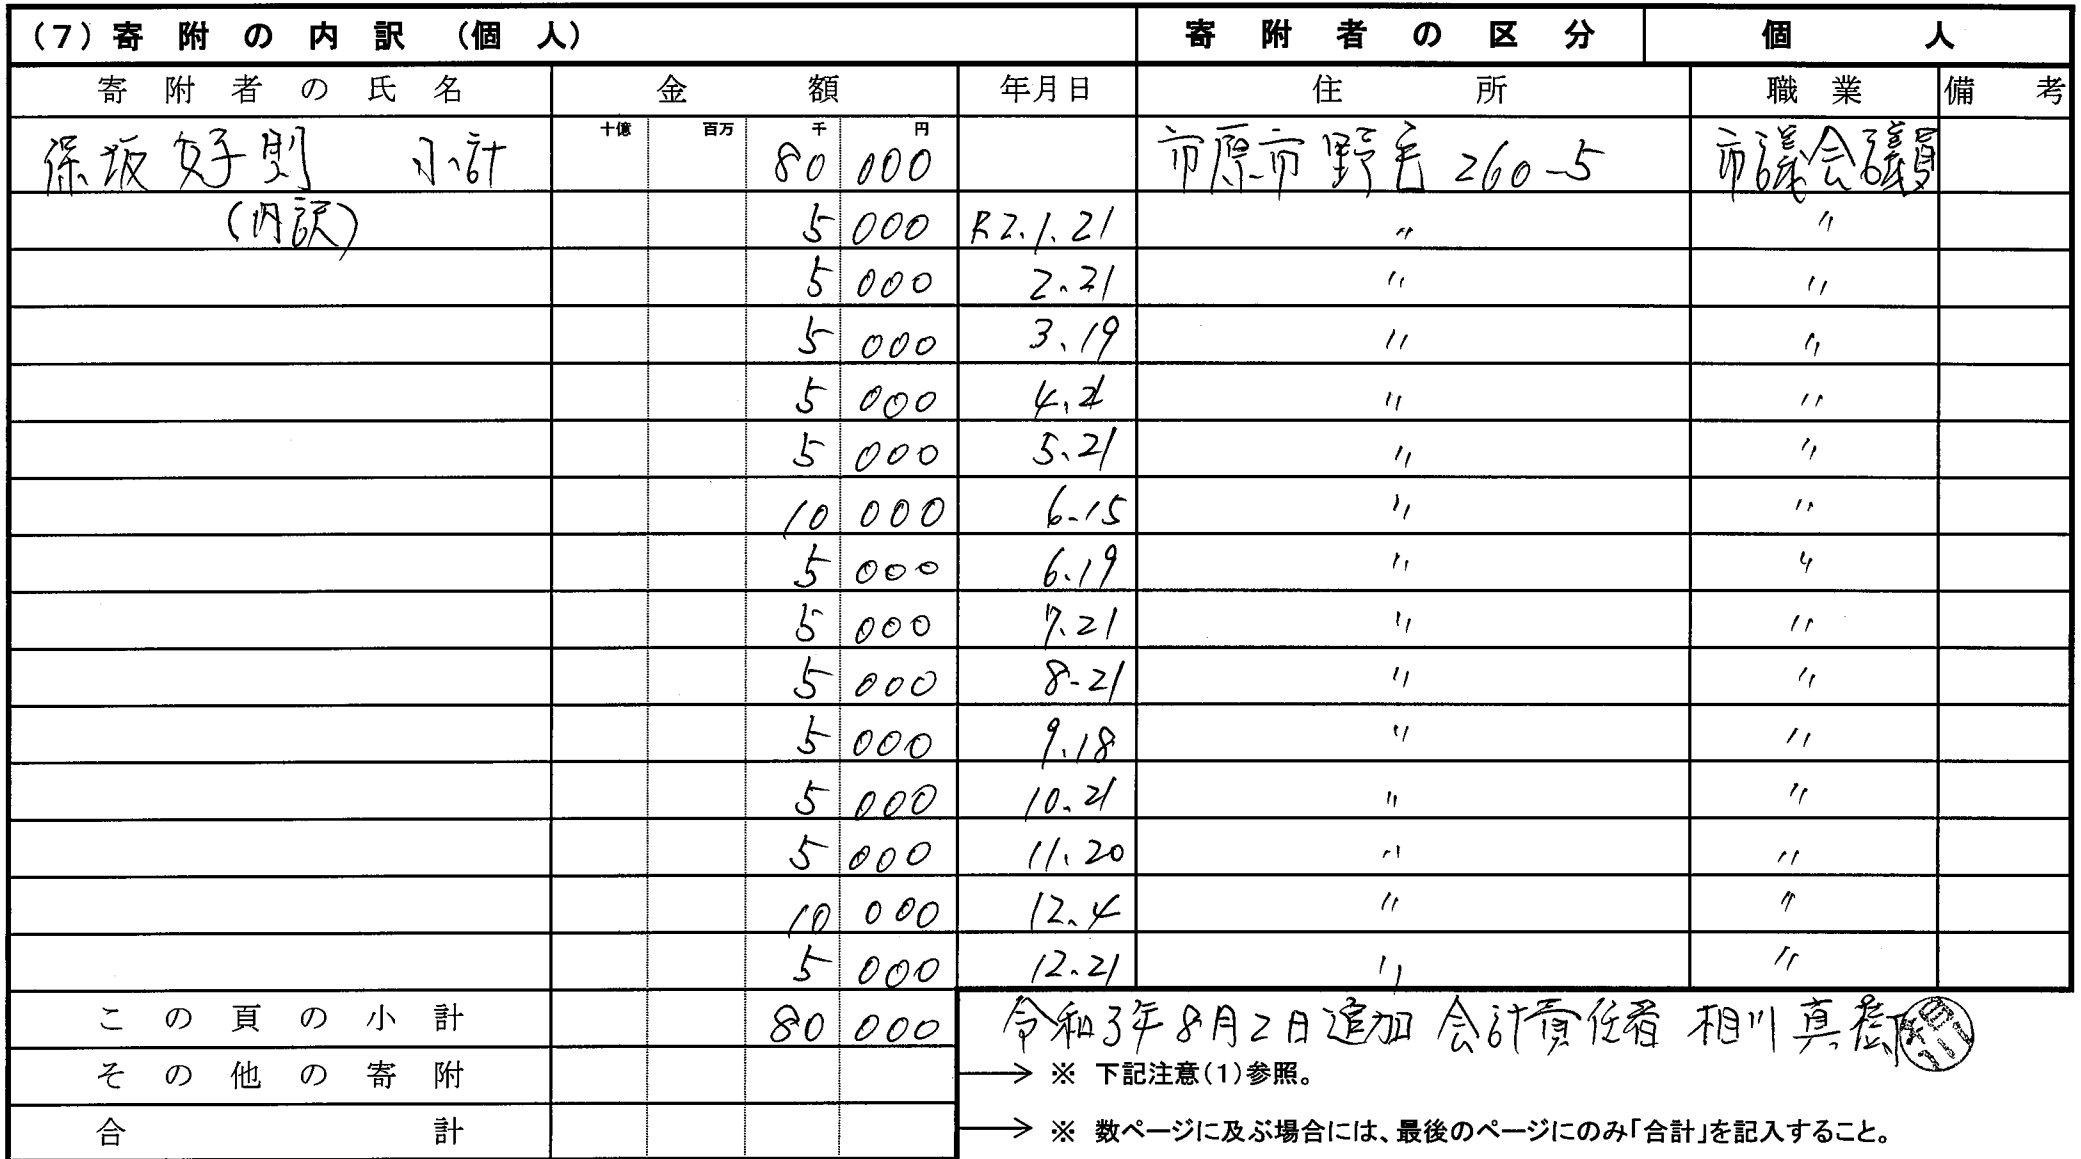 (7)寄附の内訳(個人) 寄附者の区分 個人
寄附者の氏名 金額 年月日 住所 職業 備考
十億 百万 千 円
保坂好則 小計 80 000 市原市野毛260-5 市議会議員
(内訳) 5 000 R2.1.21 〃 〃
5 000 2.21 〃 〃
5 000 3.19 〃 〃
5 000 4.21 〃 〃
5 000 5.21 〃 〃
10 000 6-15 〃 〃
5 000 6.19 〃 〃
5 000 7.21 〃 〃
5 000 8-21 〃 〃
5 000 9.18 〃 〃
5 000 10.21 〃 〃
5 000 11.20 〃 〃
10 000 12.4 〃 〃
5 000 12.21 〃 〃
この頁の小計 80 000 令和3年8月2日追加 会計責任者 相川真樹 相川
その他の寄附 → ※ 下記注意(1)参照。
合計 → ※ 数ページに及ぶ場合には、最後のページにのみ「合計」を記入すること。